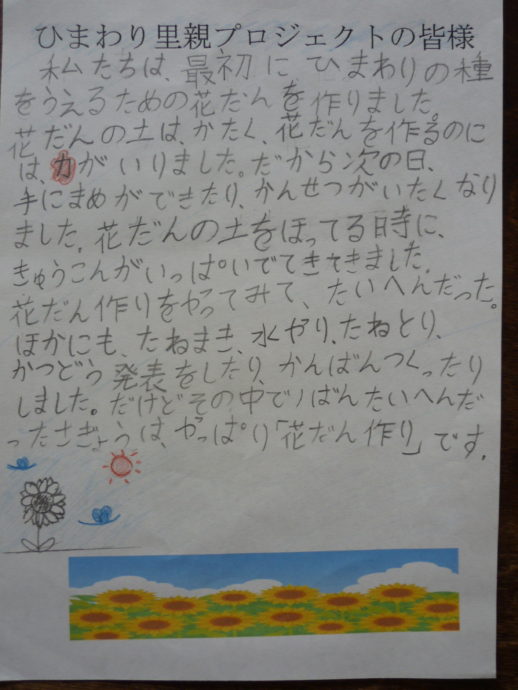 ひまわり里親プロジェクトの皆様
私たちは、最初にひまわりの種
をうえるための花だんを作りました。
花だんの土は、かたく、花だんを作るのに
は、力がいりました。だから次の日、
手にまめができたり、かんせつがいたくなり
ました。花だんの土をほってる時に、
きゅうこんがいっぱいでてきてきました。
花だん作りをやってみて、たいへんだった。
ほかにも、たねまき、水やり、たねとり、
かつどう発表をしたり、かんばんつくったり
しました。だけどその中で1ばんたいへんだ
ったさぎょうは、やっぱり「花だん作り」です。